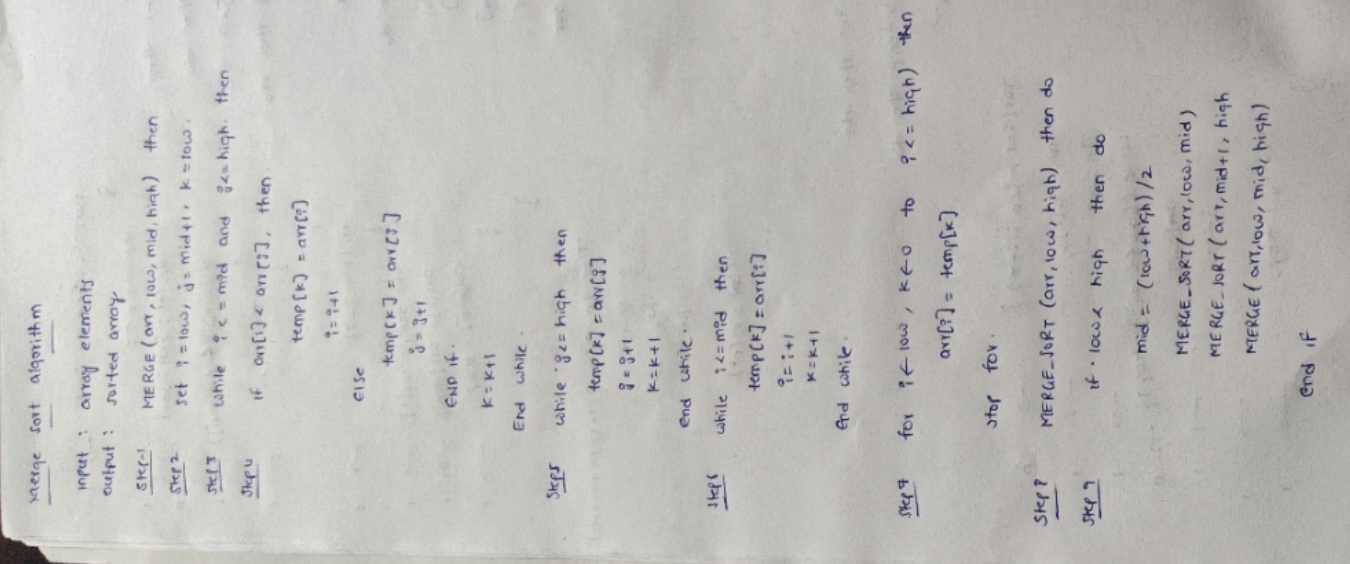 Merge Sort algorithm
input : array elements
output : sorted array
Step-1 MERGE (arr, low, mid, high) then
Step 2 set i = low, j = mid+1, k = low.
Step 3 while i <= mid and j <= high. then
Step 4 if arr[i] < arr[j], then
temp[k] = arr[i]
i = i+1
else
temp[k] = arr[j]
j = j+1
END if.
k = k+1
End while.
Step 5 while j <= high then
temp[k] = arr[j]
j = j+1
k = k+1
end while.
Step 6 while i <= mid then
temp[k] = arr[i]
i = i+1
k = k+1
End while.
Step 7 for i ← low, k ← 0 to i <= high) then
arr[i] = temp[k]
stop for.
Step 8 MERGE_SORT (arr, low, high) then do
Step 9 if low < high then do
mid = (low+high)/2
MERGE_SORT (arr, low, mid)
MERGE_SORT (arr, mid+1, high
MERGE (arr, low, mid, high)
end if